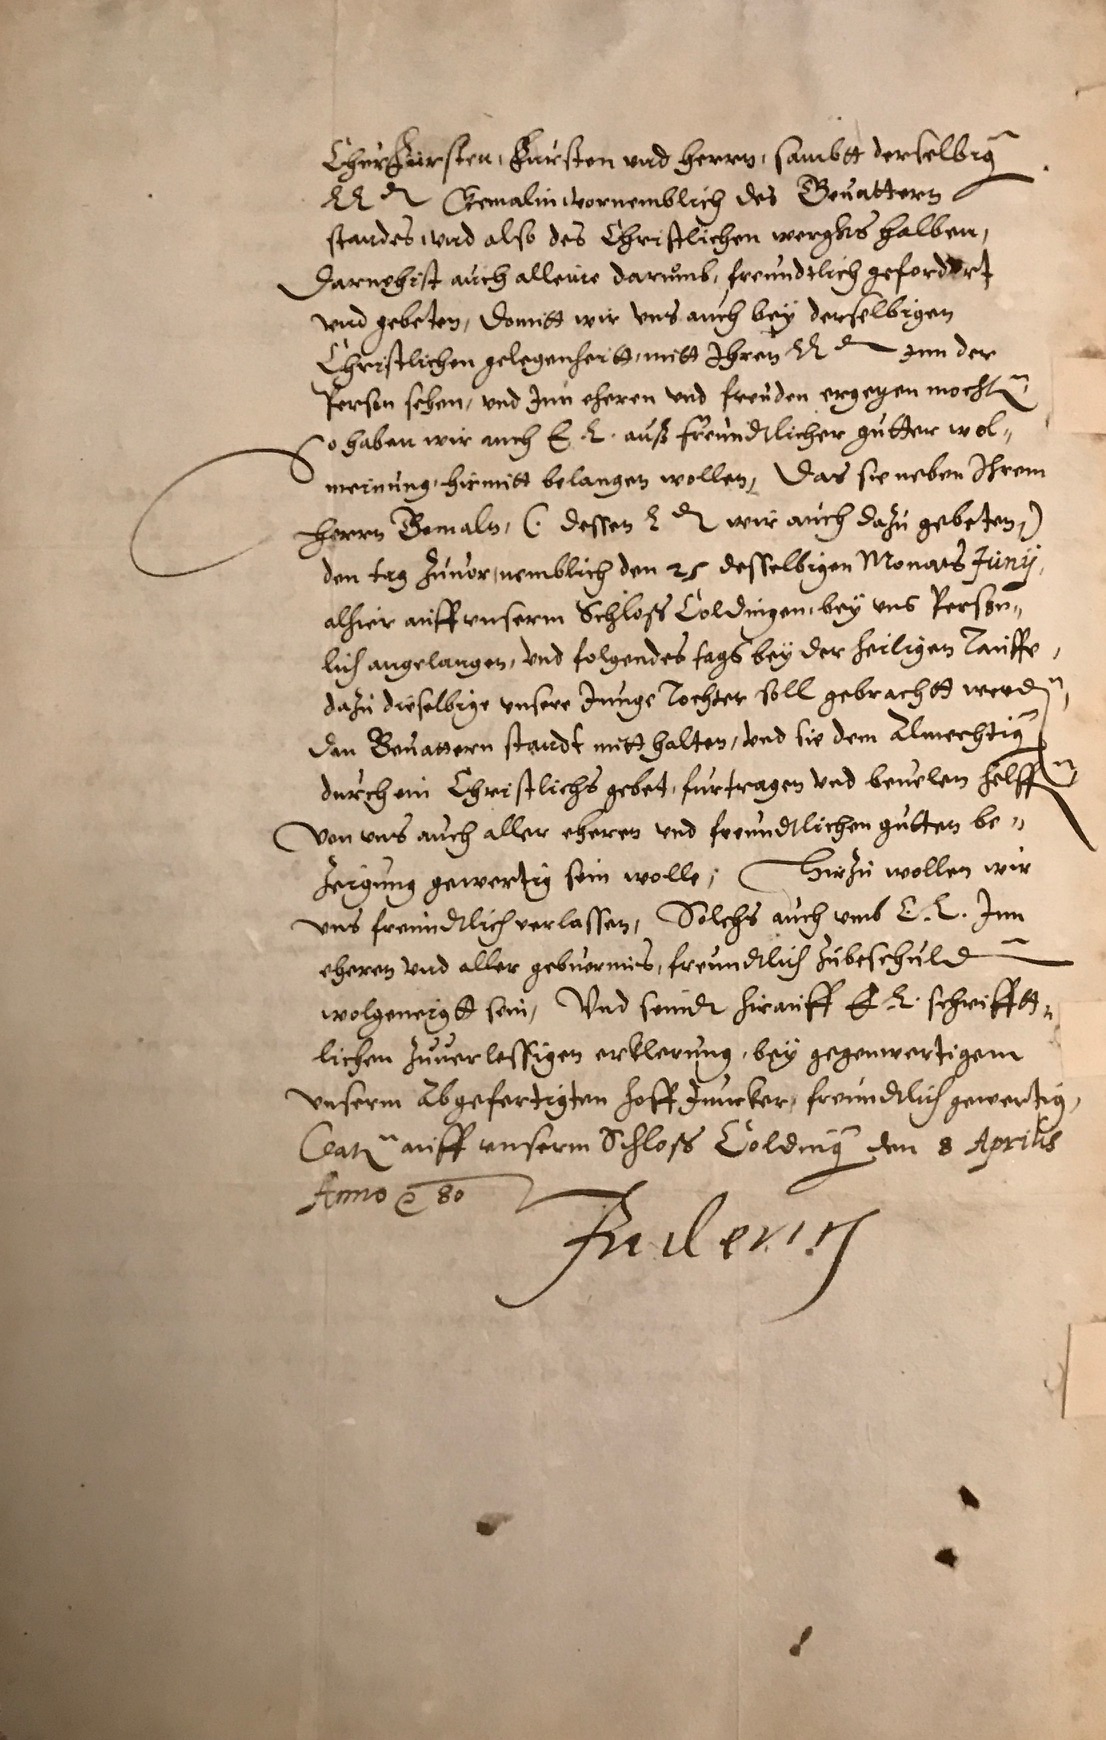 Churfursten, Fursten vnd herrn, sambtt derselbig
LL Gemalin vornemblich des Geuattern
standes, vnd also des Christlichen wergks halben,
Darnehist auch alleine darumb, freundtlich gefordert
vnd gebeten, Domitt wir vns auch bey derselbigen
Christlichen gelegenheitt, mitt Ihren LL inn der
Person sehen, vnd Inn eheren vnd freuden ergetzen mocht
So haben wir auch E. L. auß freundtlicher gutter wol-
meinung, hirmitt belangen wollen, Das sie neben Ihrem
herrn Gemaln, (: dessen L wir auch dazu gebeten,)
den tag zuuor, nemblich den 25 desselbigen Monats Junij,
alhier auff vnserm Schloss Coldingen, bey vns Person-
lich angelangen, vnd folgendes tags bey der heiligen Tauffe,
dazu dieselbige vnsere Junge Tochter soll gebrachtt werd,
Den Geuattern standt mitt halten, vnd sie dem Almechtig
durch ein Christlichs gebet, furtragen vnd beuelen helff
Von vns auch aller eheren vnd freundtlichen gutten be-
zeigung gewertig sein wolle, Hirzu wollen wir
vns freundtlich verlassen, Solchs auch vmb E. L. Inn
eheren vnd aller gebuernus, freundtlich zubeschuld
wolgeneigtt sein, Vnd seindt hirauff E. L. schrifftt-
lichen zuuerlessigen erklerung, bey gegenwertigem
vnserm Abgefertigten hoff Juncker, freundtlich gewertig,
Dat auff vnserm Schloss Colding den 8 Aprilis
Anno 80
Friderich